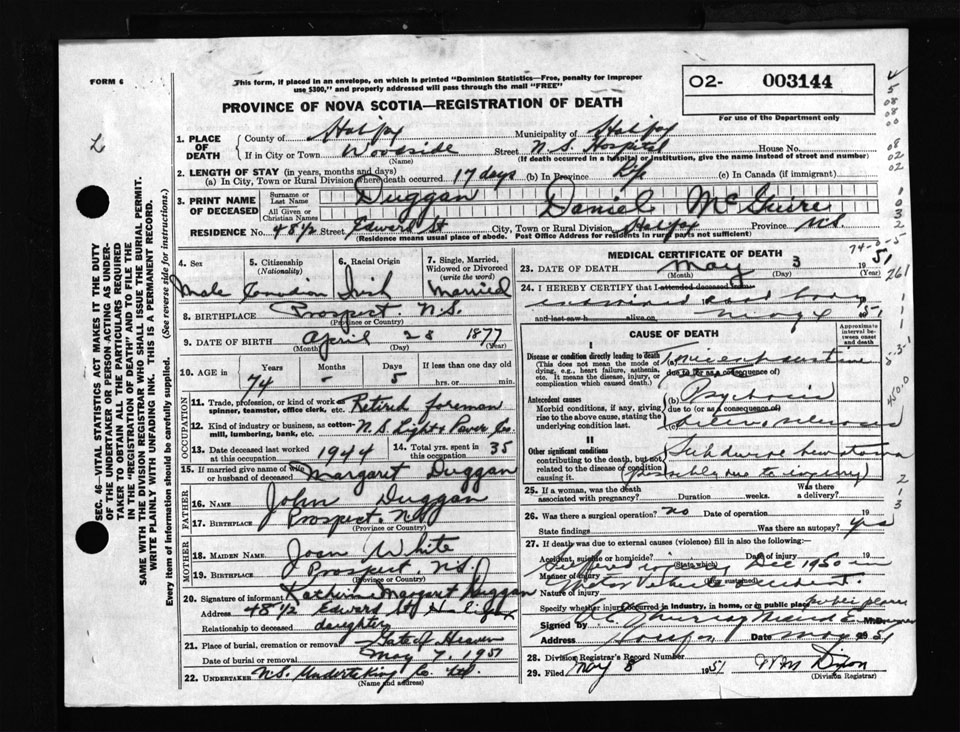 FORM 6
This form, if placed in an envelope, on which is printed "Dominion Statistics—Free, penalty for improper
use $300," and properly addressed will pass through the mail "FREE"
O2- 003144
PROVINCE OF NOVA SCOTIA—REGISTRATION OF DEATH
For use of the Department only
SEC. 46—VITAL STATISTICS ACT MAKES IT THE DUTY
OF THE UNDERTAKER OR PERSON ACTING AS UNDER-
TAKER TO OBTAIN ALL THE PARTICULARS REQUIRED
IN THE "REGISTRATION OF DEATH" AND TO FILE THE
SAME WITH THE DIVISION REGISTRAR WHO SHALL ISSUE THE BURIAL PERMIT.
WRITE PLAINLY WITH UNFADING INK. THIS IS A PERMANENT RECORD.
Every item of information should be carefully supplied. (See reverse side for instructions.)
1. PLACE OF DEATH County of Halifax Municipality of Halifax
If in City or Town Woodside Street N.S. Hospital House No.
(Name) (If death occurred in a hospital or institution, give the name instead of street and number)
2. LENGTH OF STAY (in years, months and days)
(a) In City, Town or Rural Division where death occurred. 17 days (b) In Province Life (c) In Canada (if immigrant)
3. PRINT NAME OF DECEASED Surname or Last Name Duggan
All Given or Christian Names Daniel McGuire
RESIDENCE No. 48½ Street Edward St City, Town or Rural Division Halifax Province N.S.
(Residence means usual place of abode. Post Office Address for residents in rural parts not sufficient)
4. Sex Male
5. Citizenship (Nationality) Canadian
6. Racial Origin Irish
7. Single, Married, Widowed or Divorced (write the word) Married
8. BIRTHPLACE Prospect, N.S.
(Province or Country)
9. DATE OF BIRTH April 28 1877
(Month) (Day) (Year)
10. AGE in Years Months Days If less than one day
74 - 5 hrs. or min.
OCCUPATION
11. Trade, profession, or kind of work as spinner, teamster, office clerk, etc. Retired foreman
12. Kind of industry or business, as cotton-mill, lumbering, bank, etc. N.S. Light & Power Co.
13. Date deceased last worked at this occupation 1944 14. Total yrs. spent in this occupation 35
15. If married give name of wife or husband of deceased Margaret Duggan
FATHER
16. NAME John Duggan
17. BIRTHPLACE Prospect, N.S.
(Province or Country)
MOTHER
18. MAIDEN NAME Joan White
19. BIRTHPLACE Prospect, N.S.
(Province or Country)
20. Signature of informant Katherine Margaret Duggan
Address 48½ Edward St, Halifax
Relationship to deceased daughter
21. Place of burial, cremation or removal Gate of Heaven
Date of burial or removal May 7, 1951
22. UNDERTAKER N.S. Undertaking Co. Ltd.
(Name and address)
MEDICAL CERTIFICATE OF DEATH
23. DATE OF DEATH May 3 1951
(Month) (Day) (Year)
24. I HEREBY CERTIFY that I attended deceased from
examined dead body
and last saw h alive on May 4 51
CAUSE OF DEATH
Approximate interval between onset and death
I
Disease or condition directly leading to death
(This does not mean the mode of dying, e.g., heart failure, asthenia, etc. It means the disease, injury, or complication which caused death.)
(a)
due to (or as a consequence of)
Antecedent causes
Morbid conditions, if any, giving rise to the above cause, stating the underlying condition last.
(b) Psychosis
due to (or as a consequence of)
II
Other significant conditions
contributing to the death, but not related to the disease or condition causing it.
possibly due to injury
25. If a woman, was the death associated with pregnancy? Duration weeks. Was there a delivery?
26. Was there a surgical operation? no Date of operation 19
State findings Was there an autopsy? yes
27. If death was due to external causes (violence) fill in also the following:
Accident, suicide or homicide? (State which) Date of injury 19
Suffered injury Dec 1950 in
Manner of injury (How sustained)
Motor Vehicle accident.
Nature of injury
Specify whether injury occurred in industry, in home, or in public place public place
Signed by Murray M.D.
Address Halifax Date May 1951
28. Division Registrar's Record Number
29. Filed May 8 1951
(Division Registrar)